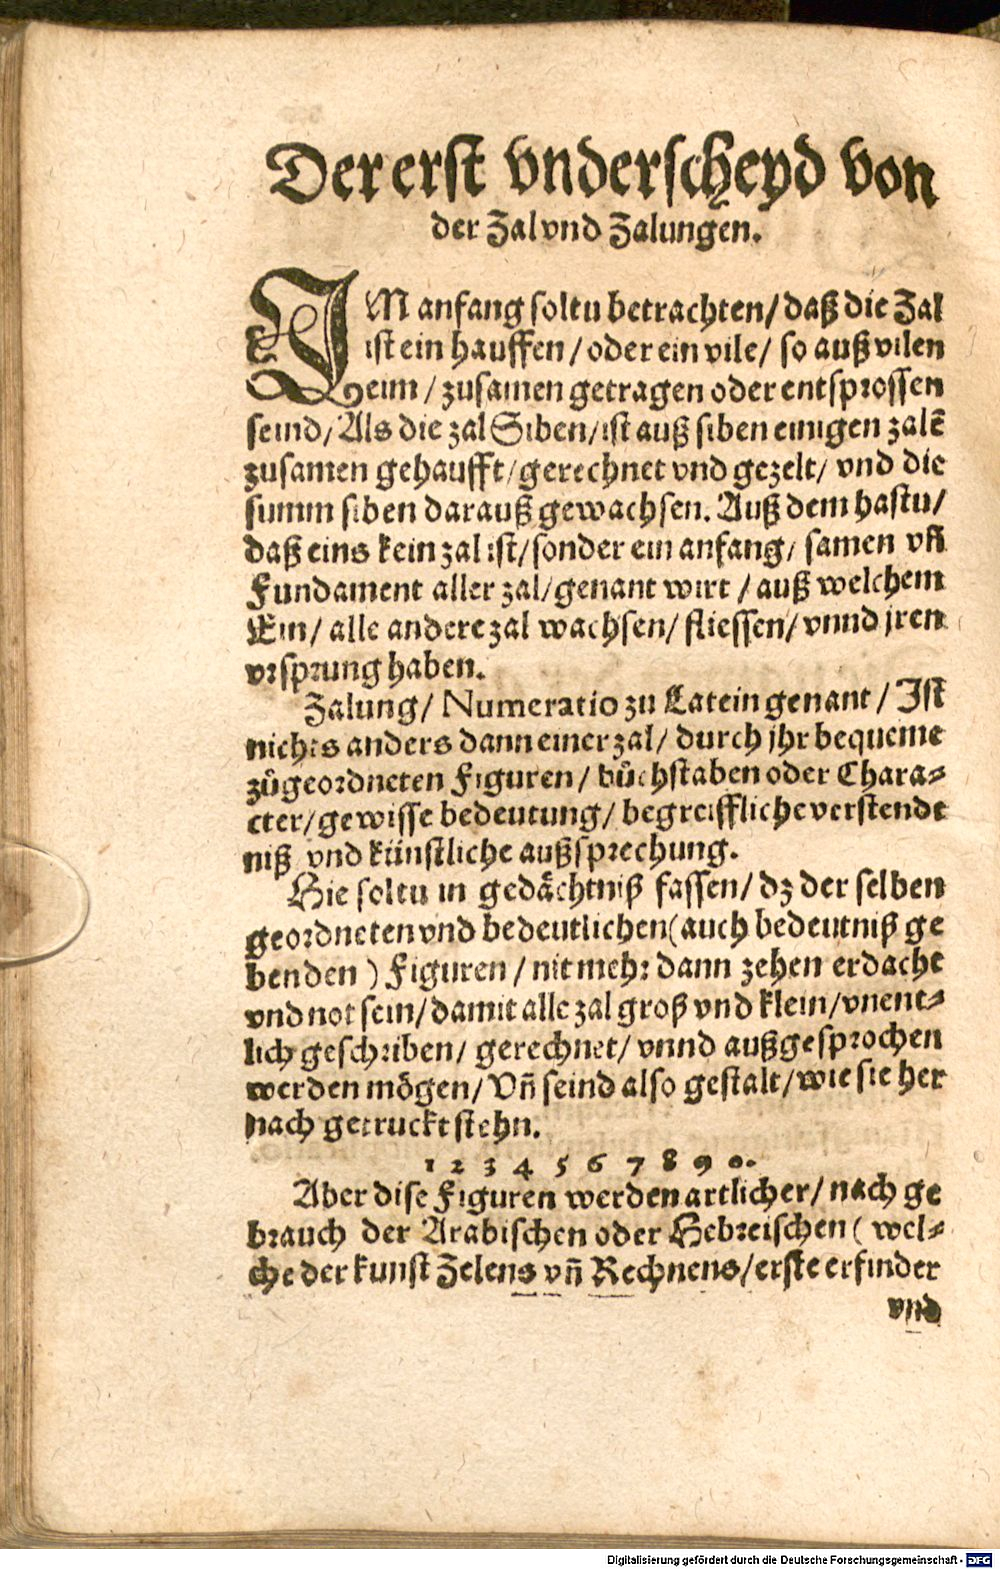 Der erst vnderscheyd von
der Zal vnd Zalungen.
IM anfang soltu betrachten/ daß die Zal
ist ein hauffen/ oder ein vile/ so auß vilen
Leim/ zusamen getragen oder entsprossen
seind/ Als die zal Siben/ ist auß siben einigen zalē
zusamen gehaufft/ gerechnet vnd gezelt/ vnd die
summ siben darauß gewachsen. Auß dem hastu/
daß eins kein zal ist/ sonder ein anfang/ samen vñ
Fundament aller zal/ genant wirt/ auß welchem
Ein/ alle andere zal wachsen/ fliessen/ vnnd jren
vrsprung haben.
Zalung/ Numeratio zu Latein genant/ Ist
nichts anders dann einer zal/ durch jhr bequeme
zůgeordneten Figuren/ bůchstaben oder Chara-
cter/ gewisse bedeutung/ begreiffliche verstendt
niß vnd künstliche außsprechung.
Hie soltu in gedächtniß fassen/ dz der selben
geordneten vnd bedeutlichen (auch bedeutniß ge
benden) Figuren/ nit mehr dann zehen erdacht
vnd not sein/ damit alle zal groß vnd klein/ vnent-
lich geschriben/ gerechnet/ vnnd außgesprochen
werden mögen/ Vñ seind also gestalt/ wie sie her
nach getruckt stehn.
1 2 3 4 5 6 7 8 9 0.
Aber dise Figuren werden artlicher/ nach ge
brauch der Arabischen oder Hebreischen (wel-
che der kunst Zelens vñ Rechnens/ erste erfinder
vnd
Digitalisierung gefördert durch die Deutsche Forschungsgemeinschaft - DFG